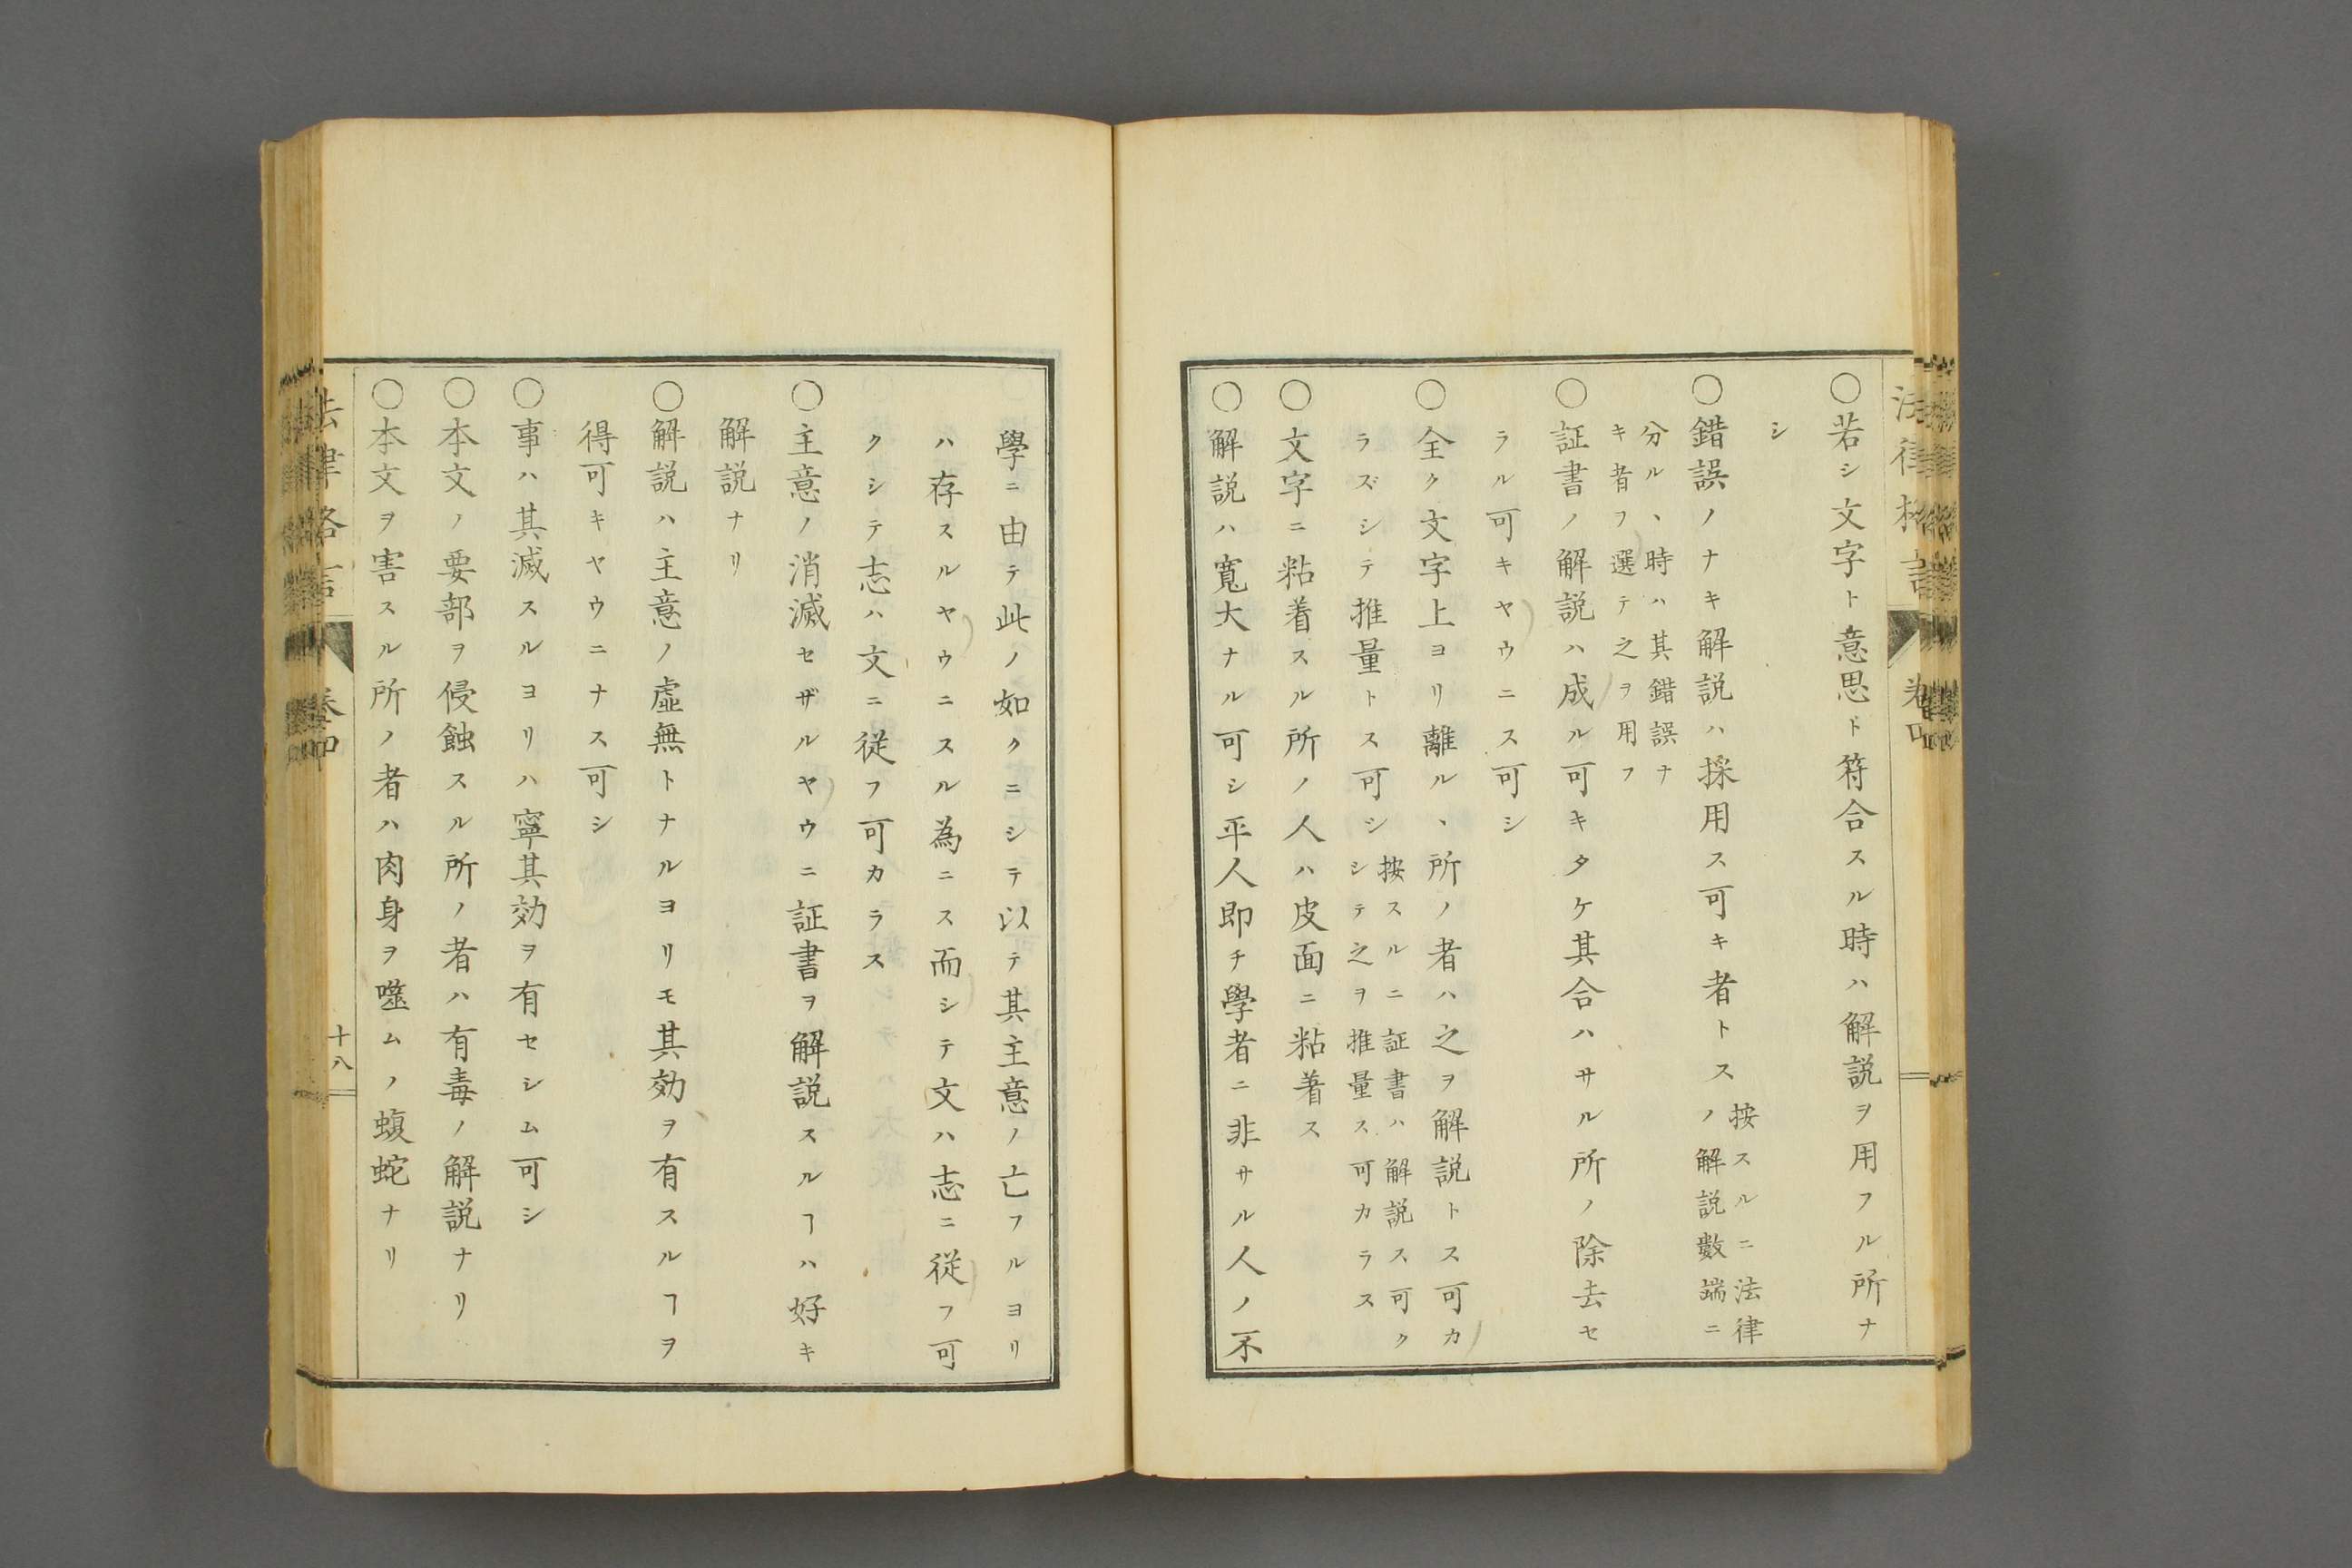 ○若シ文字ト意思ト符合スル時ハ解説ヲ用フル所ナ
シ
○錯誤ノナキ解説ハ採用ス可キ者トス
按スルニ法律
ノ解説數端ニ
分ル、時ハ其錯誤ナ
キ者フ選テ之ヲ用フ
○証書ノ解説ハ成ル可キタケ其合ハサル所ノ除去セ
ラル可キヤウニス可シ
○全ク文字上ヨリ離ル、所ノ者ハ之ヲ解説トス可カ
ラズシテ推量トス可シ
按スルニ証書ハ解説ス可ク
シテ之ヲ推量ス可カラス
○文字ニ粘着スル所ノ人ハ皮面ニ粘着ス
○解説ハ寛大ナル可シ平人即チ學者ニ非サル人ノ不
學ニ由テ此ノ如クニシテ以テ其主意ノ亡フルヨリ
ハ存スルヤウニスル為ニス而シテ文ハ志ニ従フ可
クシテ志ハ文ニ従フ可カラス
○主意ノ消滅セザルヤウニ証書ヲ解説スルヿハ好キ
解説ナリ
○解説ハ主意ノ虚無トナルヨリモ其効ヲ有スルヿヲ
得可キヤウニナス可シ
○事ハ其滅スルヨリハ寧其効ヲ有セシム可シ
○本文ノ要部ヲ侵蝕スル所ノ者ハ有毒ノ解説ナリ
○本文ヲ害スル所ノ者ハ肉身ヲ噬ムノ蝮蛇ナリ
法律格言
卷四
十八